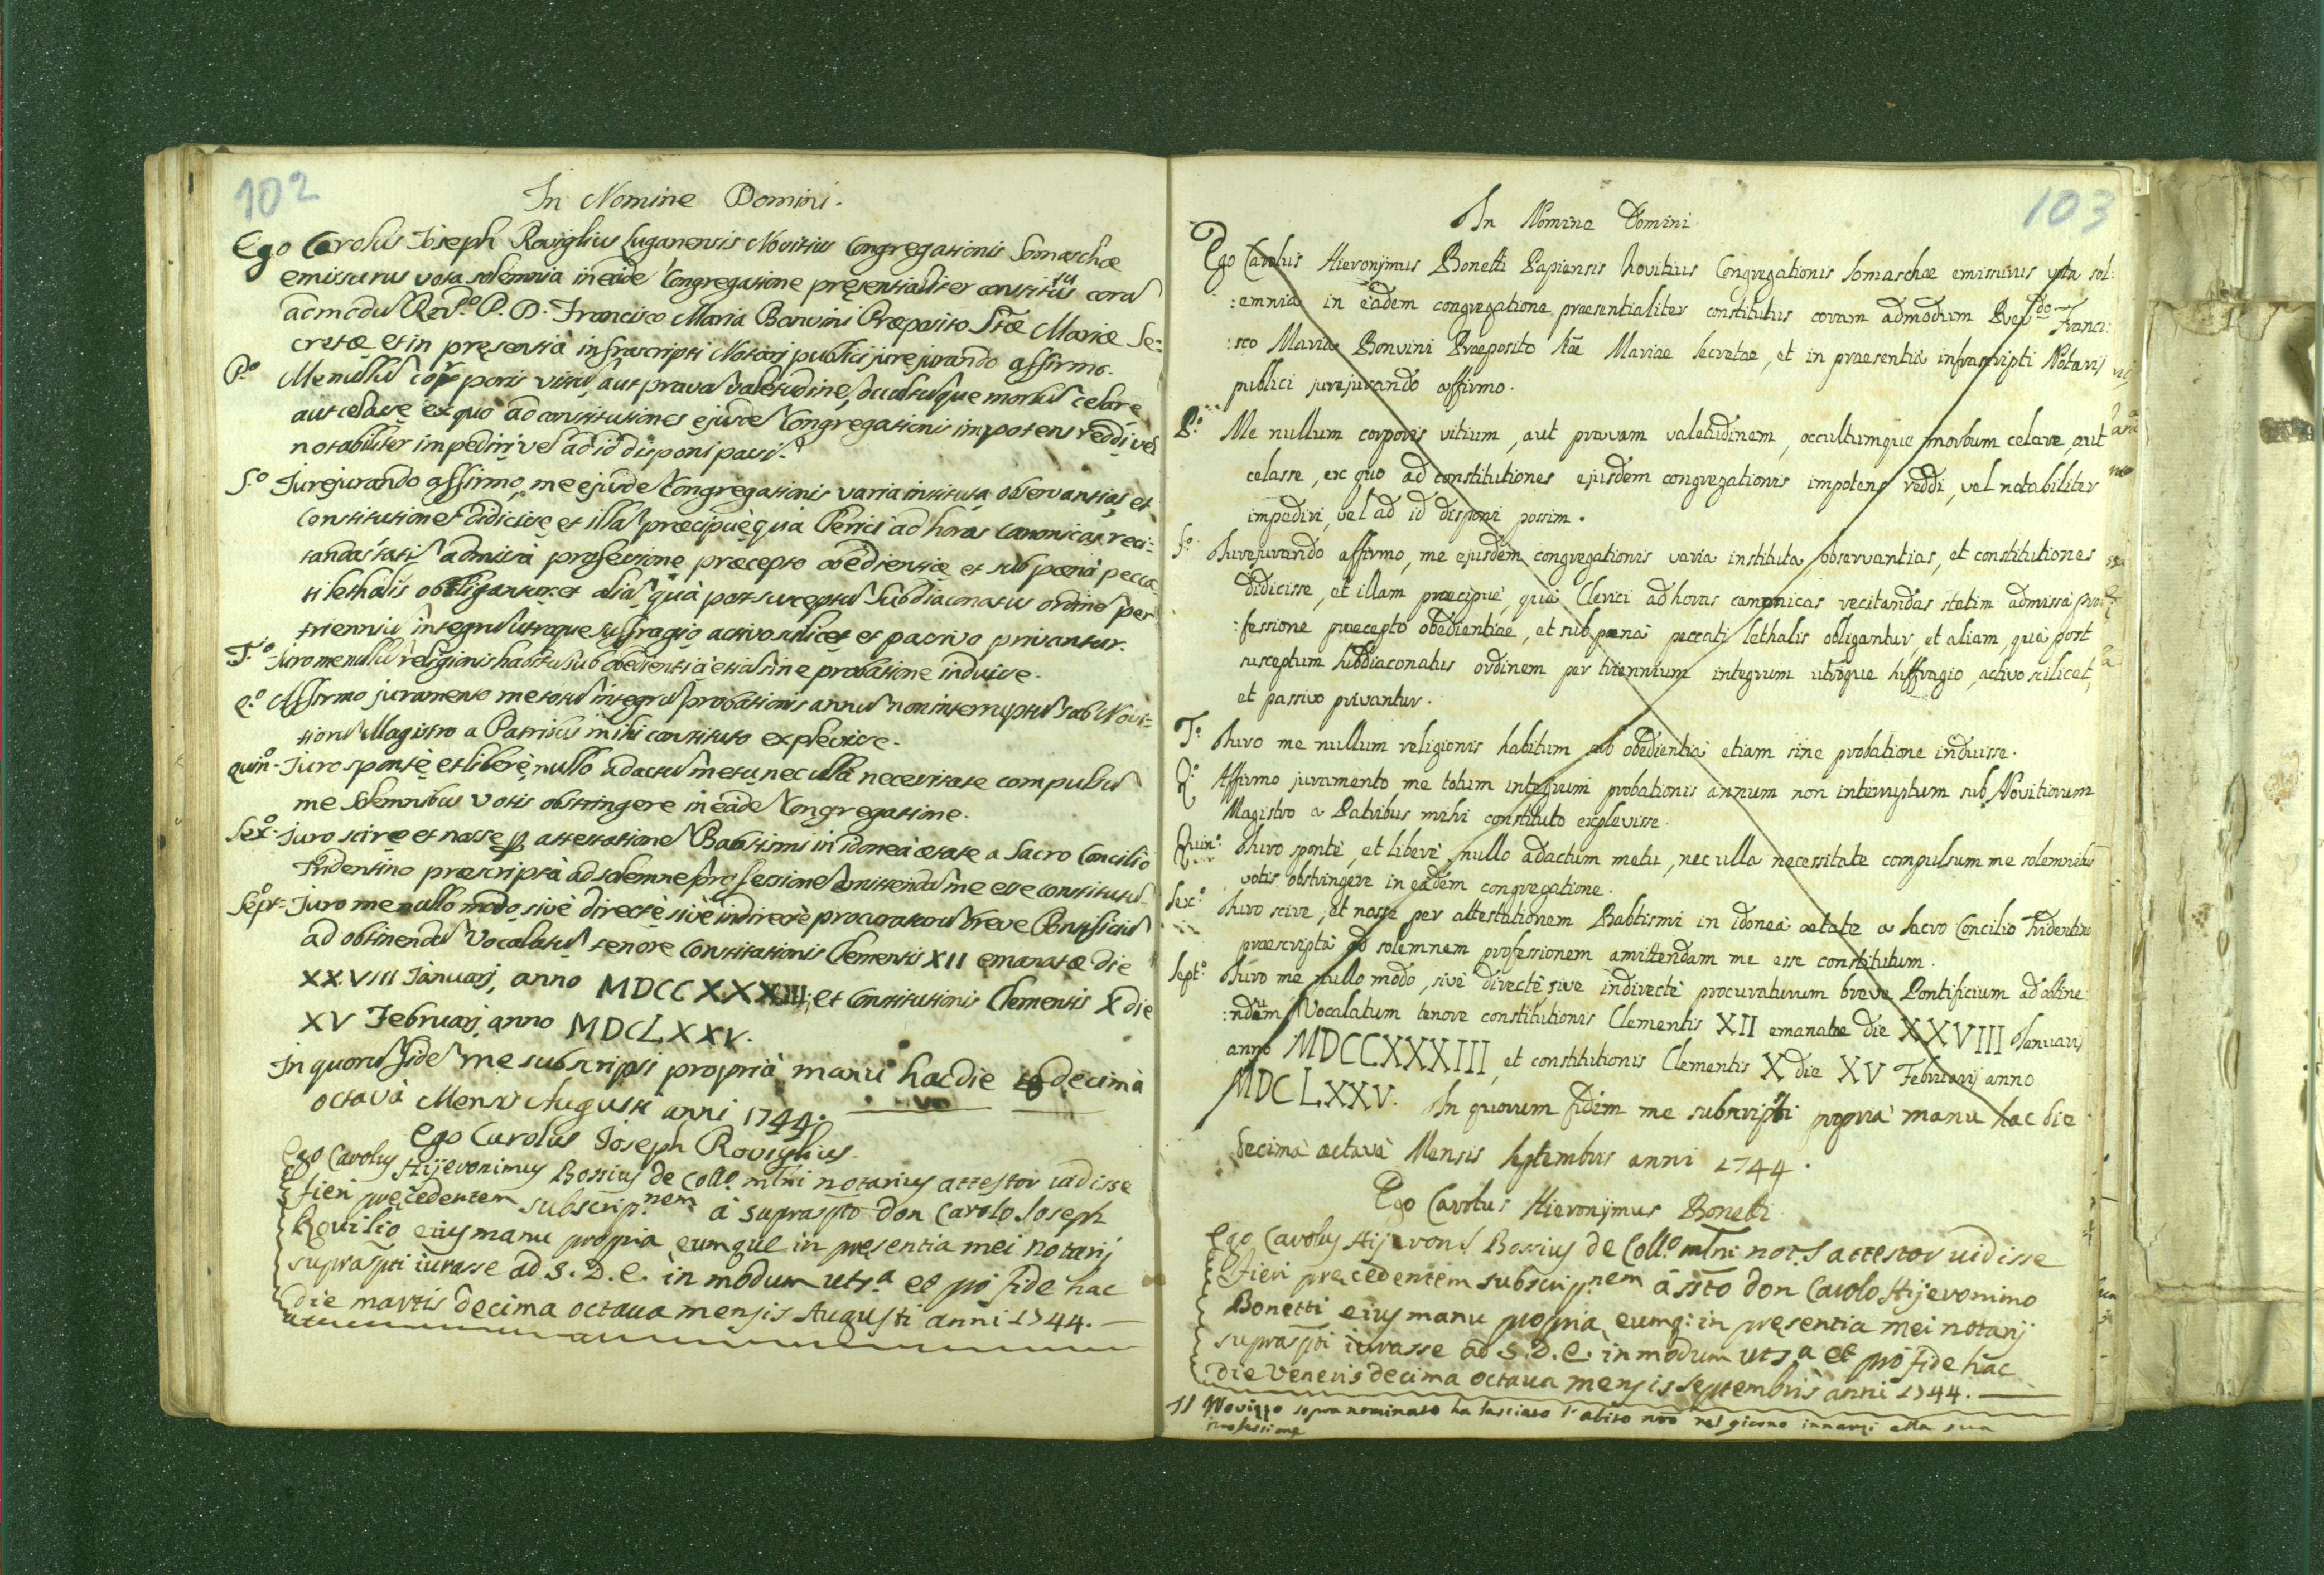 102
In Nomine Domini.
Ego Carolus Joseph Roviglius Luganensis Novitius Congregationis Somaschæ
emissurus vota solemnia in eadē Congregatione pręsentialiter constitutus corā
admodū Rev.do P. D. Francisco Maria Bonvini Præposito Stæ Mariæ Se=
cretæ et in pręsentià infrascripti Notarij publici jurejurando affirmo.
P.o Me nullū corporis vitiū, aut pravā valetudinē, occultūque morbū celare
aut celasse ex quo ad constitutiones ejusdē Congregationis impotens reddi, vel
notabiliter impediri vel ad id disponi possī.
S.o Jurejurando affirmo, me ejusdē Congregationis varia instituta, observantias, et
Constitutiones didicisse et illā præcipuè quà Clerici ad horas canonicas reci=
tandas statī admissà professione præcepto obedientiæ et sub pœnà pecca
ti lethalis obbligantur et aliā quà post susceptū Subdiaconatus ordinē per
trienniū integrū utroque suffragio activo scilicet et passivo privantur.
T.o Juro me nullū religionis habitū sub obedientià etiā sine probatione induisse.
Q.o Affirmo juramento me totū integrū probationis annū non interruptū sub Novi=
tiorū Magistro a Patribus mihi constituto explevisse.
Quin.o Juro spontè et liberè, nullo adactū metu nec ulla necessitate compulsū
me solemnibus votis obstringere in eadē Congregatione.
Sex.o Juro scire et nosse p attestationē Babtismi in idonea ætate a Sacro Concilio
Tridentino præscriptà ad solemnē professionē emittendā me esse constitutū
Sept.o Juro me nullo modo sivè directè sivè indirectè procuraturū breve Pontificiū
ad obtinendū Vocalatū tenore Constitutionis Clementis XII emanatæ die
XXVIII Januarj, anno MDCCXXXIII, et Constitutionis Clementis X die
XV Februarj anno MDCLXXV.
In quorū fidē me subscripsi proprià manu hac die decimà
octavà Mensis Augusti anni 1744.
Ego Carolus Joseph Roviglius.
Ego Carolus Hijeronimus Bossius de Coll.o mlni notarius attestor uidisse
fieri pręcedentem subscrip.nem à suprascpto don Carolo Joseph
Rouilio eius manu propria, eumque in pręsentia mei notarij
suprascpti iurasse ad S. D. E. in modum uts.a et pro fide hac
die martis decima octaua mensis Augusti anni 1744.
103
In Nomine Domini
Ego Carolus Hieronijmus Bonetti Papiensis Novitius Congregationis Somaschæ emissurus vota sol:
:emnia in eadem congregatione praesentialiter constitutus coram admodum Rev.do Franci:
:sco Maria Bonvini Praeposito Stæ Mariae Secretae, et in praesentià infrascripti Notarij
publici jurejurando affirmo.
P.o Me nullum corporis vitium, aut pravam valetudinem, occultumque morbum celare, aut
celasse, ex quo ad constitutiones ejusdem congregationis impotens reddi, vel notabiliter
impediri, vel ad id disponi possim.
S.o Jurejurando affirmo, me ejusdem congregationis varia instituta, observantias, et constitutiones
didicisse, et illam præcipuè, quà Clerici ad horas canonicas recitandas statim admissà pro
:fessione praecepto obedientiae, et sub pœnà peccati lethalis obligantur, et aliam, quà post
susceptum subdiaconatus ordinem per triennium integrum utroque suffragio, activo scilicet,
et passivo privantur.
T.o Juro me nullum religionis habitum sub obedientià etiam sine probatione induisse.
Q.o Affirmo juramento me totum integrum probationis annum non interruptum sub Novitiorum
Magistro a Patribus mihi constituto explevisse.
Quin.o Juro spontè, et liberè, nullo adactum metu, nec ulla necessitate compulsum me solemnibus
votis obstringere in eadem congregatione.
Sex.o Juro scire, et nosse per attestationem Babtismi in idoneà aetate a Sacro Concilio Tridentino
praescriptà ad solemnem professionem amittendam me esse constitutum.
Sept.o Juro me nullo modo, sivè directè sive indirectè procuraturum breve Pontificium ad obtine
:ndum Vocalatum tenore constitutionis Clementis XII emanatae die XXVIII Januarij
anno MDCCXXXIII, et constitutionis Clementis X die XV Februarij anno
MDCLXXV. In quorum fidem me subscripsi propria manu hac die
decimà octavà Mensis Septembris anni 1744.
Ego Carolus Hieronijmus Bonetti
Ego Carolus Hijeron.s Bossius de Coll.o mlni not.s attestor uidisse
fieri pręcedentem subscrip.nem à ssto don Carolo Hijeronimo
Bonetti eius manu propria, eumq: in pręsentia mei notarij
suprascpti iurasse ad S. D. E. in modum uts.a et pro fide hac
die Veneris decima octaua mensis septembris anni 1744.
Il Novizzo sopranominato ha lasciato l'abito nro nel giorno innanzi alla sua
professione